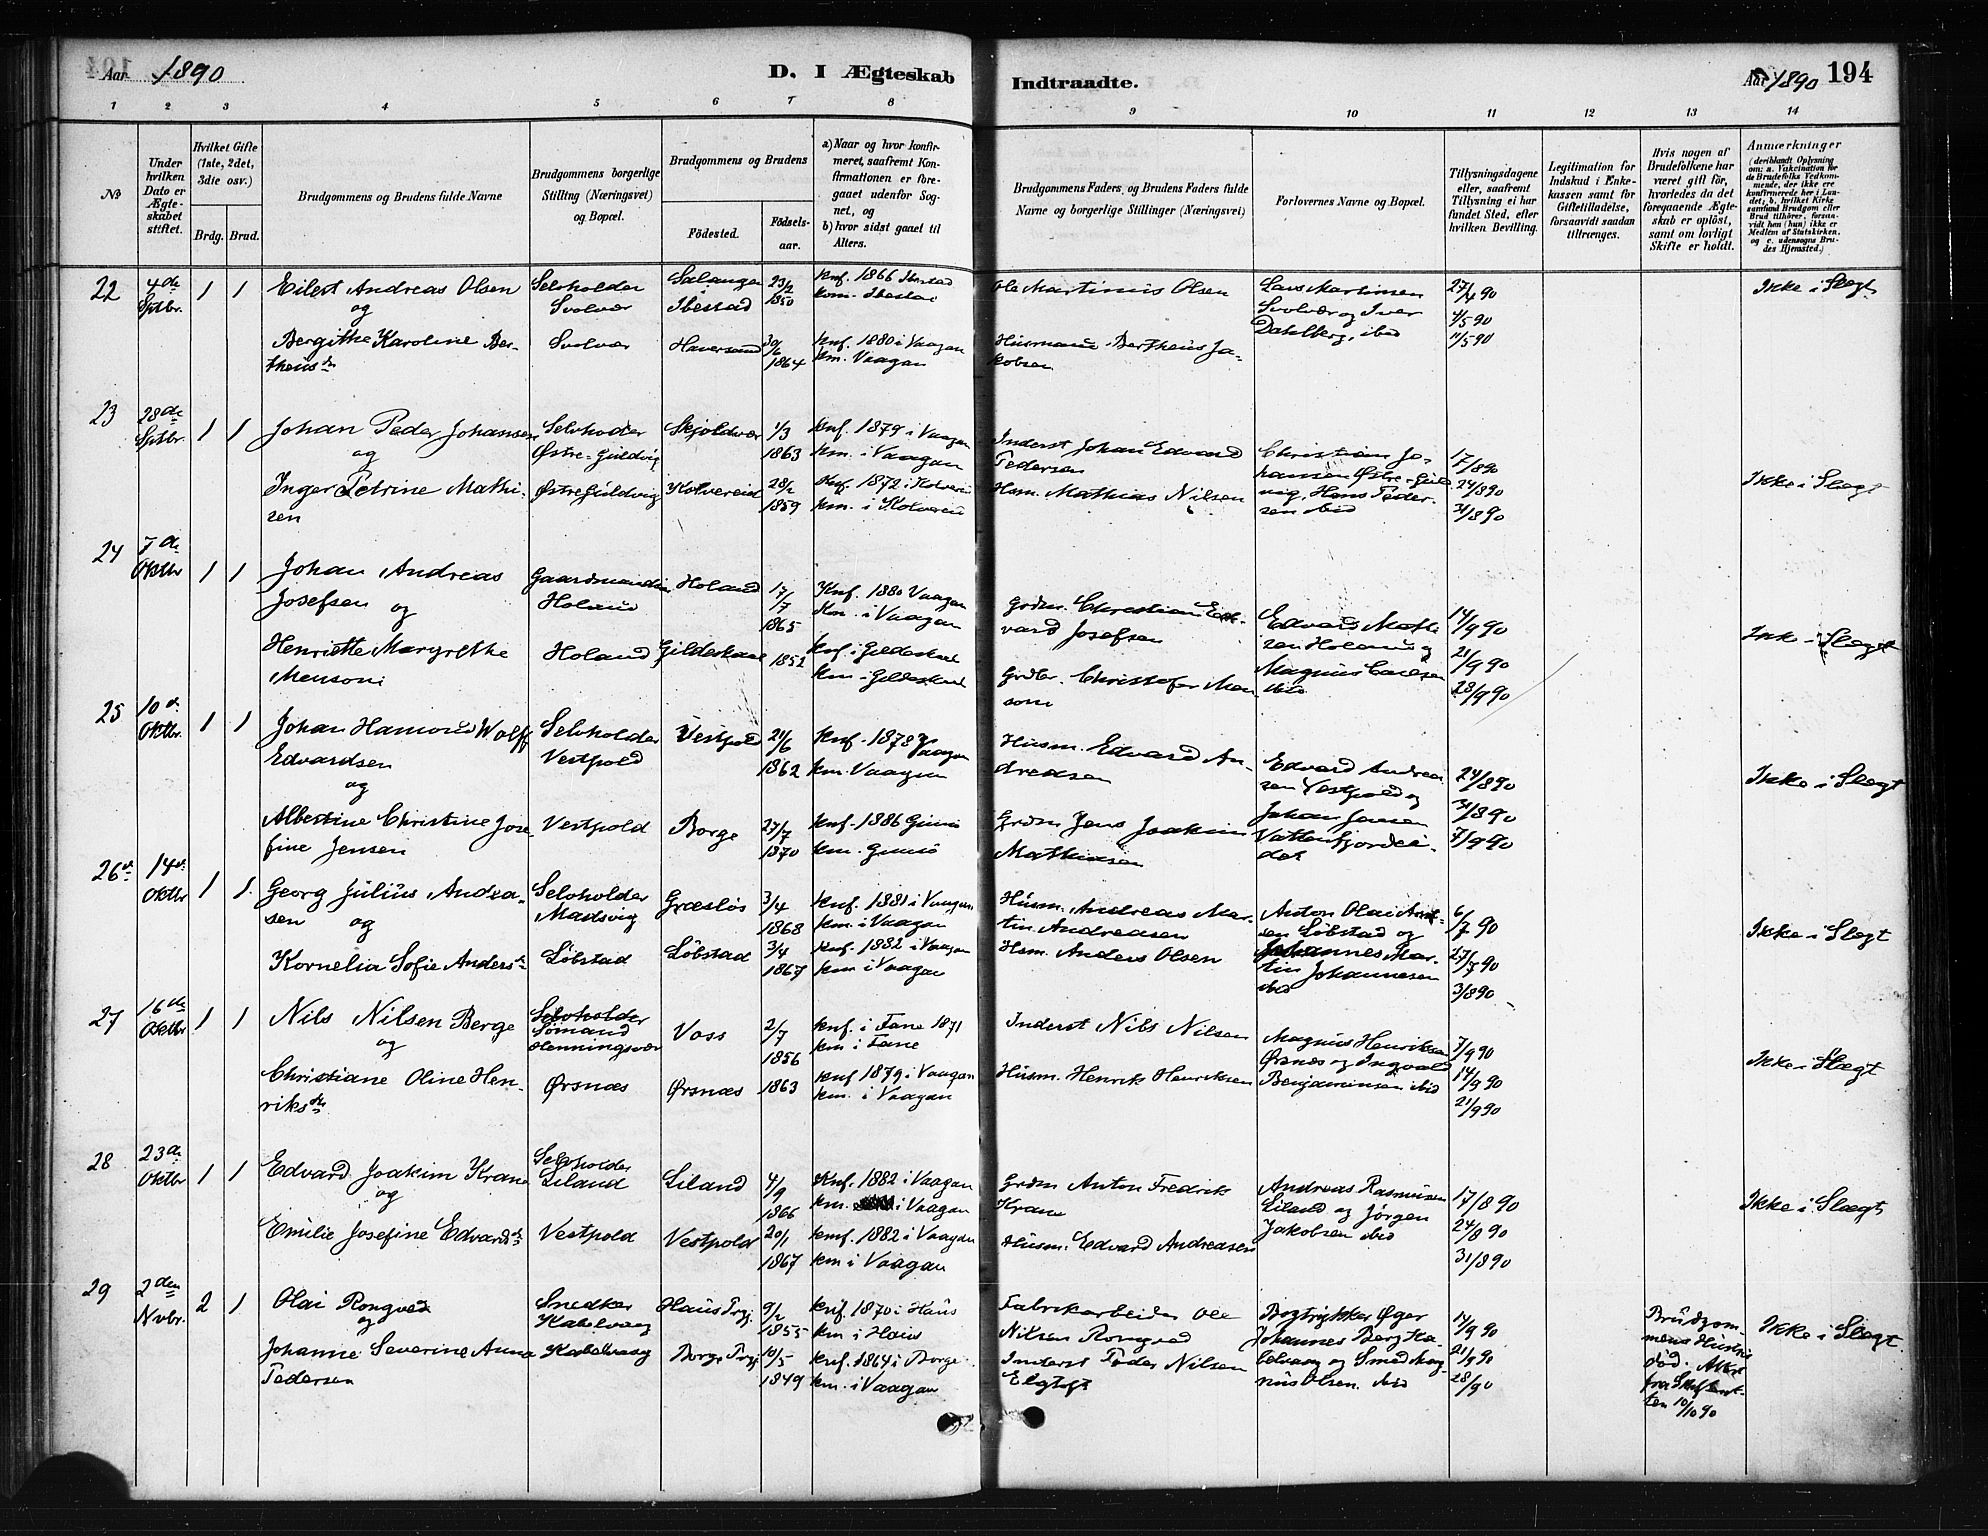 Aar 1890
D. I Ægteskab Indtraadte.
Aar 1890 194
1 2 3 4 5 6 7 8 9 10 11 12 13 14
№
Under hvilken Dato er Ægteskabet stiftet.
Hvilket Gifte (1ste, 2det, 3die osv.)
Brdg. Brud.
Brudgommens og Brudens fulde Navne
Brudgommens borgerlige Stilling (Næringsvei) og Bopæl.
Brudgommens og Brudens
Födested. Födsels-aar.
a) Naar og hvor konfirmeret, saafremt Konfirmationen er foregaaet udenfor Sognet, og
b) hvor sidst gaaet til Alters.
Brudgommens Faders og Brudens Faders fulde Navne og borgerlige Stillinger (Næringsvei)
Forlovernes Navne og Bopæl.
Tillysningsdagene eller, saafremt Tillysning ei har fundet Sted, efter hvilken Bevilling.
Legitimation for Indskud i Enkekassen samt for Giftetilladelse, forsaavidt saadan tiltrænges.
Hvis nogen af Brudefolkene har været gift för, hvorledes da det foregaaende Ægteskab er oplöst, samt om lovligt Skifte er holdt.
Anmærkninger
(deriblandt Oplysning om: a. Vakcination for de Brudefolks Vedkommende, der ikke ere konfirmerede her i Landet; b. hvilket Kirkesamfund Brudgom eller Brud tilhörer, forsaavidt han (hun) ikke er Medlem af Statskirken, og c. udensogns Brudes Hjemsted.)
22 4de Sptbr. 1 1
Eilert Andreas Olsen Selvholder Svolvær Salangen i Ibestad 23/2 1850 knf. 1866 Ibestad kom. Ibestad
og
Bergithe Karoline Bertheusdr. Svolvær Haversand 30/6 1864 knf. 1880 i Vaagan km. Vaagan
Ole Martinus Olsen
Husmand Bertheus Jakobsen
Lars Martinsen Svolvær og Iver Dahlberg, ibid
27/4 90 4/5 90 11/5 90
Ikke i Slegt
23 28de Sptbr. 1 1
Johan Peder Johansen Selvhoder Østre-Guldvig Skjoldvær 1/3 1863 knf. 1879 i Vaagan km. i Vaagan
og
Inger Petrine Mathisen Østre Guldvig Kolvereid 28/2 1859 Knf. 1872 i Kolvereid km. i Kolvereid
Inderst Johan Edvard Pedersen
Hsm. Mathias Nilsen
Christian Johansen Østre-Guldvig, Hans Pedersen ibid
17/8 90 24/8 90 31/8 90
Ikke i Slegt
24 7de Oktbr 1 1
Johan Andreas Josefsen Gaardmand Holand Holand 17/7 1865 Knf. 1880 Vaagan Km. i Vaagan
og
Henriette Margrethe Mensoni Holand Gildeskaal 1852 knf. i Gildeskaal km. Gildeskaal
Grdm. Christian Edvard Josefsen
Grdbr. Christofer Mensom
Edvard Mathisen Holand og Magnus Carlsen ibid
14/9 90 21/9 90 28/9 90
Ikke i Slegt
25 10d. Oktbr. 1 1
Johan Hamond Wolff Edvardsen Selvholder Vestpold Vestpold 24/6 1862 knf. 1878 Vaagan km. Vaagan
og
Albertine Christine Josefine Jensen Vestpold Borge 27/7 1870 knf. 1886 Gimsö km. Gimsö
Husm. Edvard Andreasen
Grdm Jens Joakim Mathiasen
Edvard Andreasen Vestpold og Johan Jansen Vatterfjordeidet
24/8 90 31/8 90 7/9 90
Ikke i Slegt
26d. 14d. Oktbr 1 1.
Georg Julius Andreasen Selvholder Madsvig Græsløs 3/4 1868 knf. 1881 i Vaagan km. i Vaagan
og
Kornelia Sofie Andersdr. Löbstad Löbstad 3/4 1867 knf. 1882 i Vaagan km i Vaagan
Husm. Andreas Martin Andreasen
Hsm. Anders Olsen
Anton Olai Löbstad og Johannes Martin Johannesen ibid
6/7 90 27/7 90 3/8 90
Ikke i Slegt
27 16de Oktbr 1 1
Nils Nilsen Berge Selvholder Sømand Henningsvær Voss 2/7 1856 knf. i Fane 1871 km i Fane
og
Christiane Oline Henriksdr. Ørsnæs Ørsnæs 1863 knf 1879 i Vaagan km. i Vaagan
Inderst Nils Nilsen
Husm. Henrik Henriksen
Magnus Henriksen Ørsnæs og Ingvald Benjaminsen ibid
7/9 90 14/9 90 21/9 90
Ikke i Slegt
28 23d. Oktbr 1 1
Edvard Joakim Krane Selvholder Liland Liland 4/9 1866 Knf. 1882 i Vaagan km. i Vaagan
og
Emilie Josefine Edvardsdr. Vestpold Vestpold 20/1 1867 kmf. 1882 i Vaagan km i Vaagan
Grdm Anton Fredrik Krane
Husm. Edvard Andreasen
Andreas Rasmusen Liland og Jørgen Jakobsen ibid
17/8 90 24/8 90 31/8 90
Ikke i Slegt
29 2den Nvbr. 2 1
Olai Rongved Snedker Kabelvaag Haus Prgj. 9/2 1855 knf. 1870 i Haus km i Haus
og
Johanne Severine Anna Pedersen Kabelvaag Borge Prgj 10/5 1849 knf. 1864 i Borge km. i Vaagan
Fabrikarbeider Ole Nilsen Rongved
Inderst Peder Nilsen Elgtoft
Bogtrykker Øger Johannes Berg Kabelvaag og Smed Magnus Olsen ibid
14/9 90 21/9 90 28/90
Brudgommens Hustru död. Attest fra Skifteretten 10/10 90
Ikke i Slegt